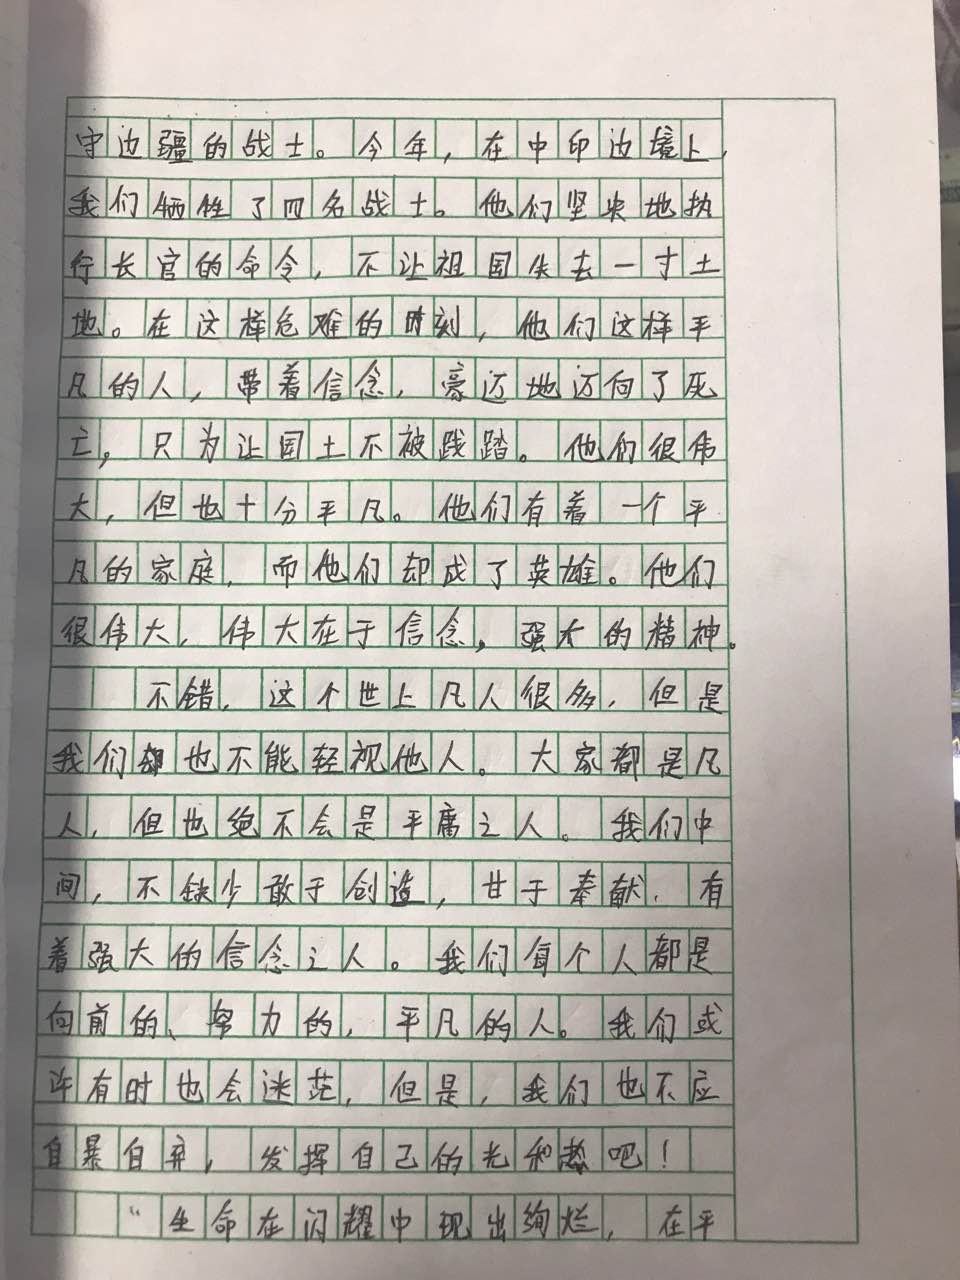 守边疆的战士。今年，在中印边境上，
我们牺牲了四名战士。他们坚决地执
行长官的命令，不让祖国失去一寸土
地。在这样危难的时刻，他们这样平
凡的人，带着信念，豪迈地迈向了死
亡，只为让国土不被践踏。他们很伟
大，但也十分平凡。他们有着一个平
凡的家庭，而他们却成了英雄。他们
很伟大，伟大在于信念，强大的精神。
不错，这个世上凡人很多，但是
我们却也不能轻视他人。大家都是凡
人，但也绝不会是平庸之人。我们中
间，不缺少敢于创造，甘于奉献，有
着强大的信念之人。我们每个人都是
向前的、努力的，平凡的人。我们或
许有时也会迷茫，但是，我们也不应
自暴自弃，发挥自己的光和热吧！
“生命在闪耀中现出绚烂，在平